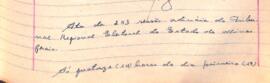 Ata da 243 sessão ordinária do Tribu-
nal Regional Eleitoral do Estado de Minas
Gerais.
Às quatorze (14) horas do dia